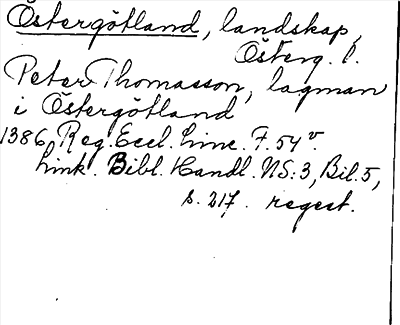 Östergötland, landskap,
Österg. l.
Peter Thomasson, lagman
i Östergötland
1386 Reg. Eccl. Linc. F. 54v.
Link. Bibl. Handl. NS:3, Bil. 5,
s. 217. regest.